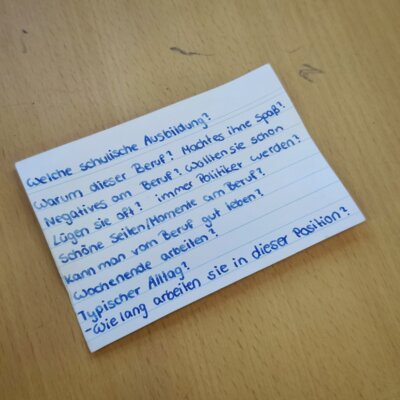 Welche schulische Ausbildung?
Warum dieser Beruf? Macht es ihne Spaß?
Negatives am Beruf? Wollten sie schon
Lügen sie oft? immer Politiker werden?
Schöne Seiten/Momente am Beruf?
Kann man vom Beruf gut leben?
Wochenende arbeiten?
Typischer Alltag?
-Wie lang arbeiten sie in dieser Position?